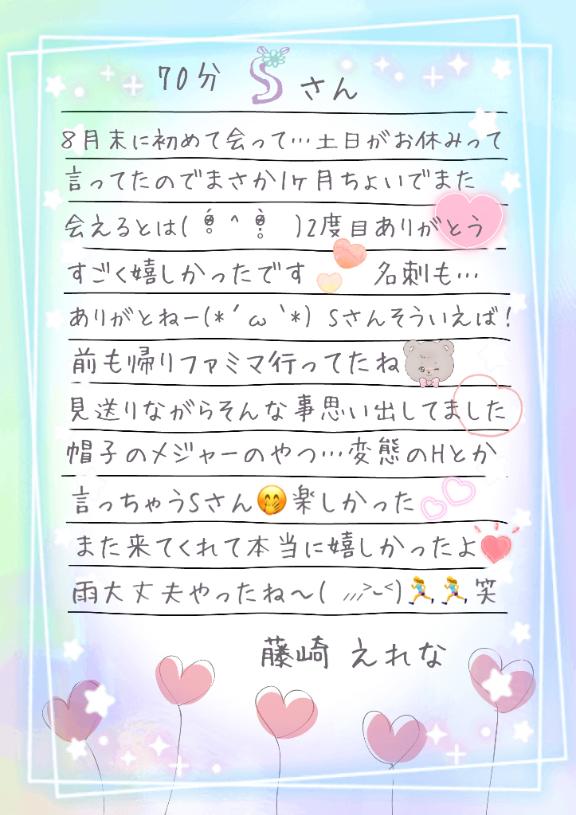 70分 Sさん
8月末に初めて会って…土日がお休みって
言ってたのでまさか1ヶ月ちょいでまた
会えるとは( ᵒ̴̶̷̥́ ^ ᵒ̴̶̷̣̥̀ )2度目ありがとう
すごく嬉しかったです 名刺も…
ありがとねー(*´ω`*) Sさんそういえば!
前も帰りファミマ行ってたね
見送りながらそんな事思い出してました
帽子のメジャーのやつ…変態のHとか
言っちゃうSさん🤭楽しかった
また来てくれて本当に嬉しかったよ
雨大丈夫やったね〜( ⸝⸝⸝>̶̥᷄~<̶̥᷅)🏃‍♀️🏃‍♀️笑
藤崎 えれな